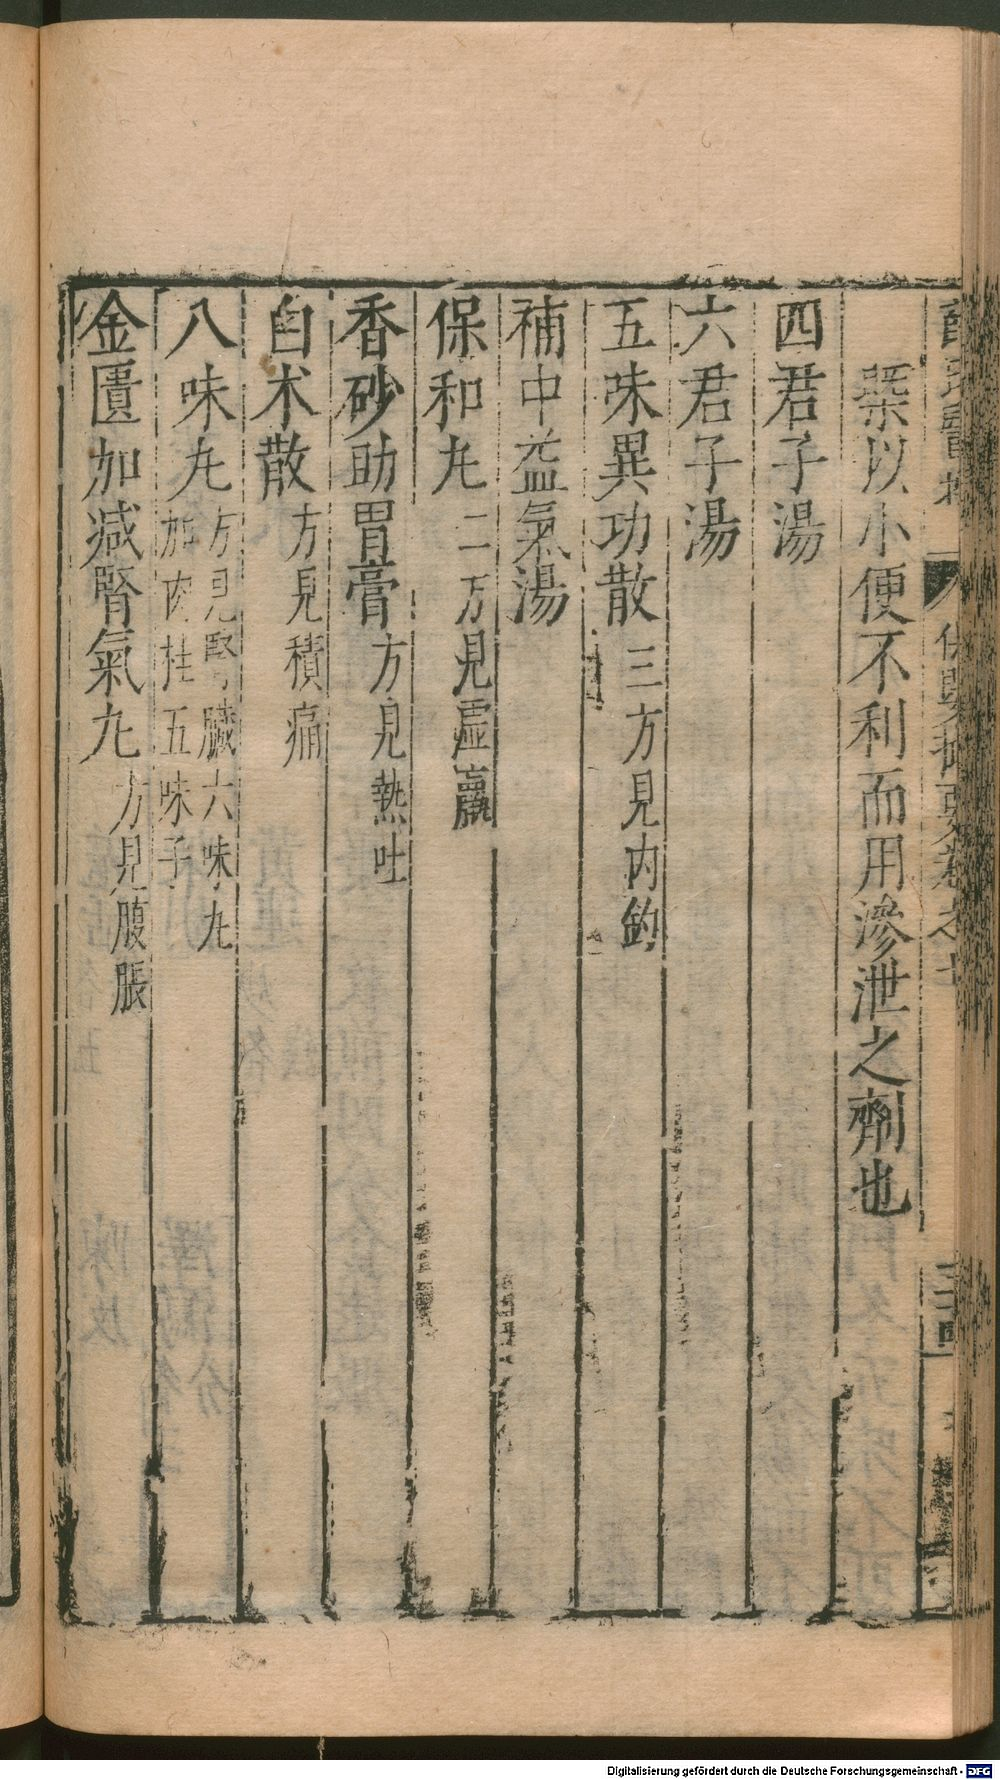 槩以小便不利而用滲泄之劑也
四君子湯
六君子湯
五味異功散 三方見内釣
補中益氣湯
保和九 二方見虚羸
香砂助胃膏 方見熱吐
白术散 方見積痛
八味九 方見腎臓六味九
加肉桂五味子
金匱加减腎氣九 方見腹脹
保嬰撮要卷之七
Digitalisierung gefördert durch die Deutsche Forschungsgemeinschaft - DFG